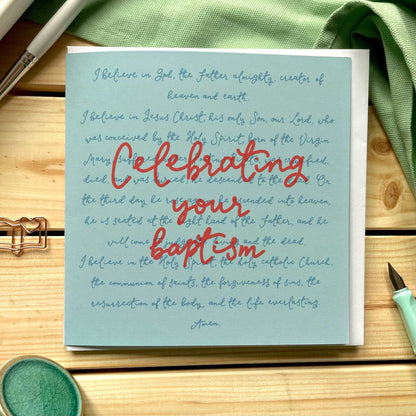 I believe in God, the Father almighty, creator of
heaven and earth.
I believe in Jesus Christ, his only Son, our Lord, who
was conceived by the Holy Spirit, born of the Virgin
Mary, suffered
crucified,
died, and was buried; he descended to the dead. On
the third day he rose
ascended into heaven,
he is seated at the right hand of the Father, and he
will come
and the dead.
I believe in the Holy Spirit, the holy catholic Church,
the communion of saints, the forgiveness of sins, the
resurrection of the body, and the life everlasting.
Amen.
Celebrating
your
baptism